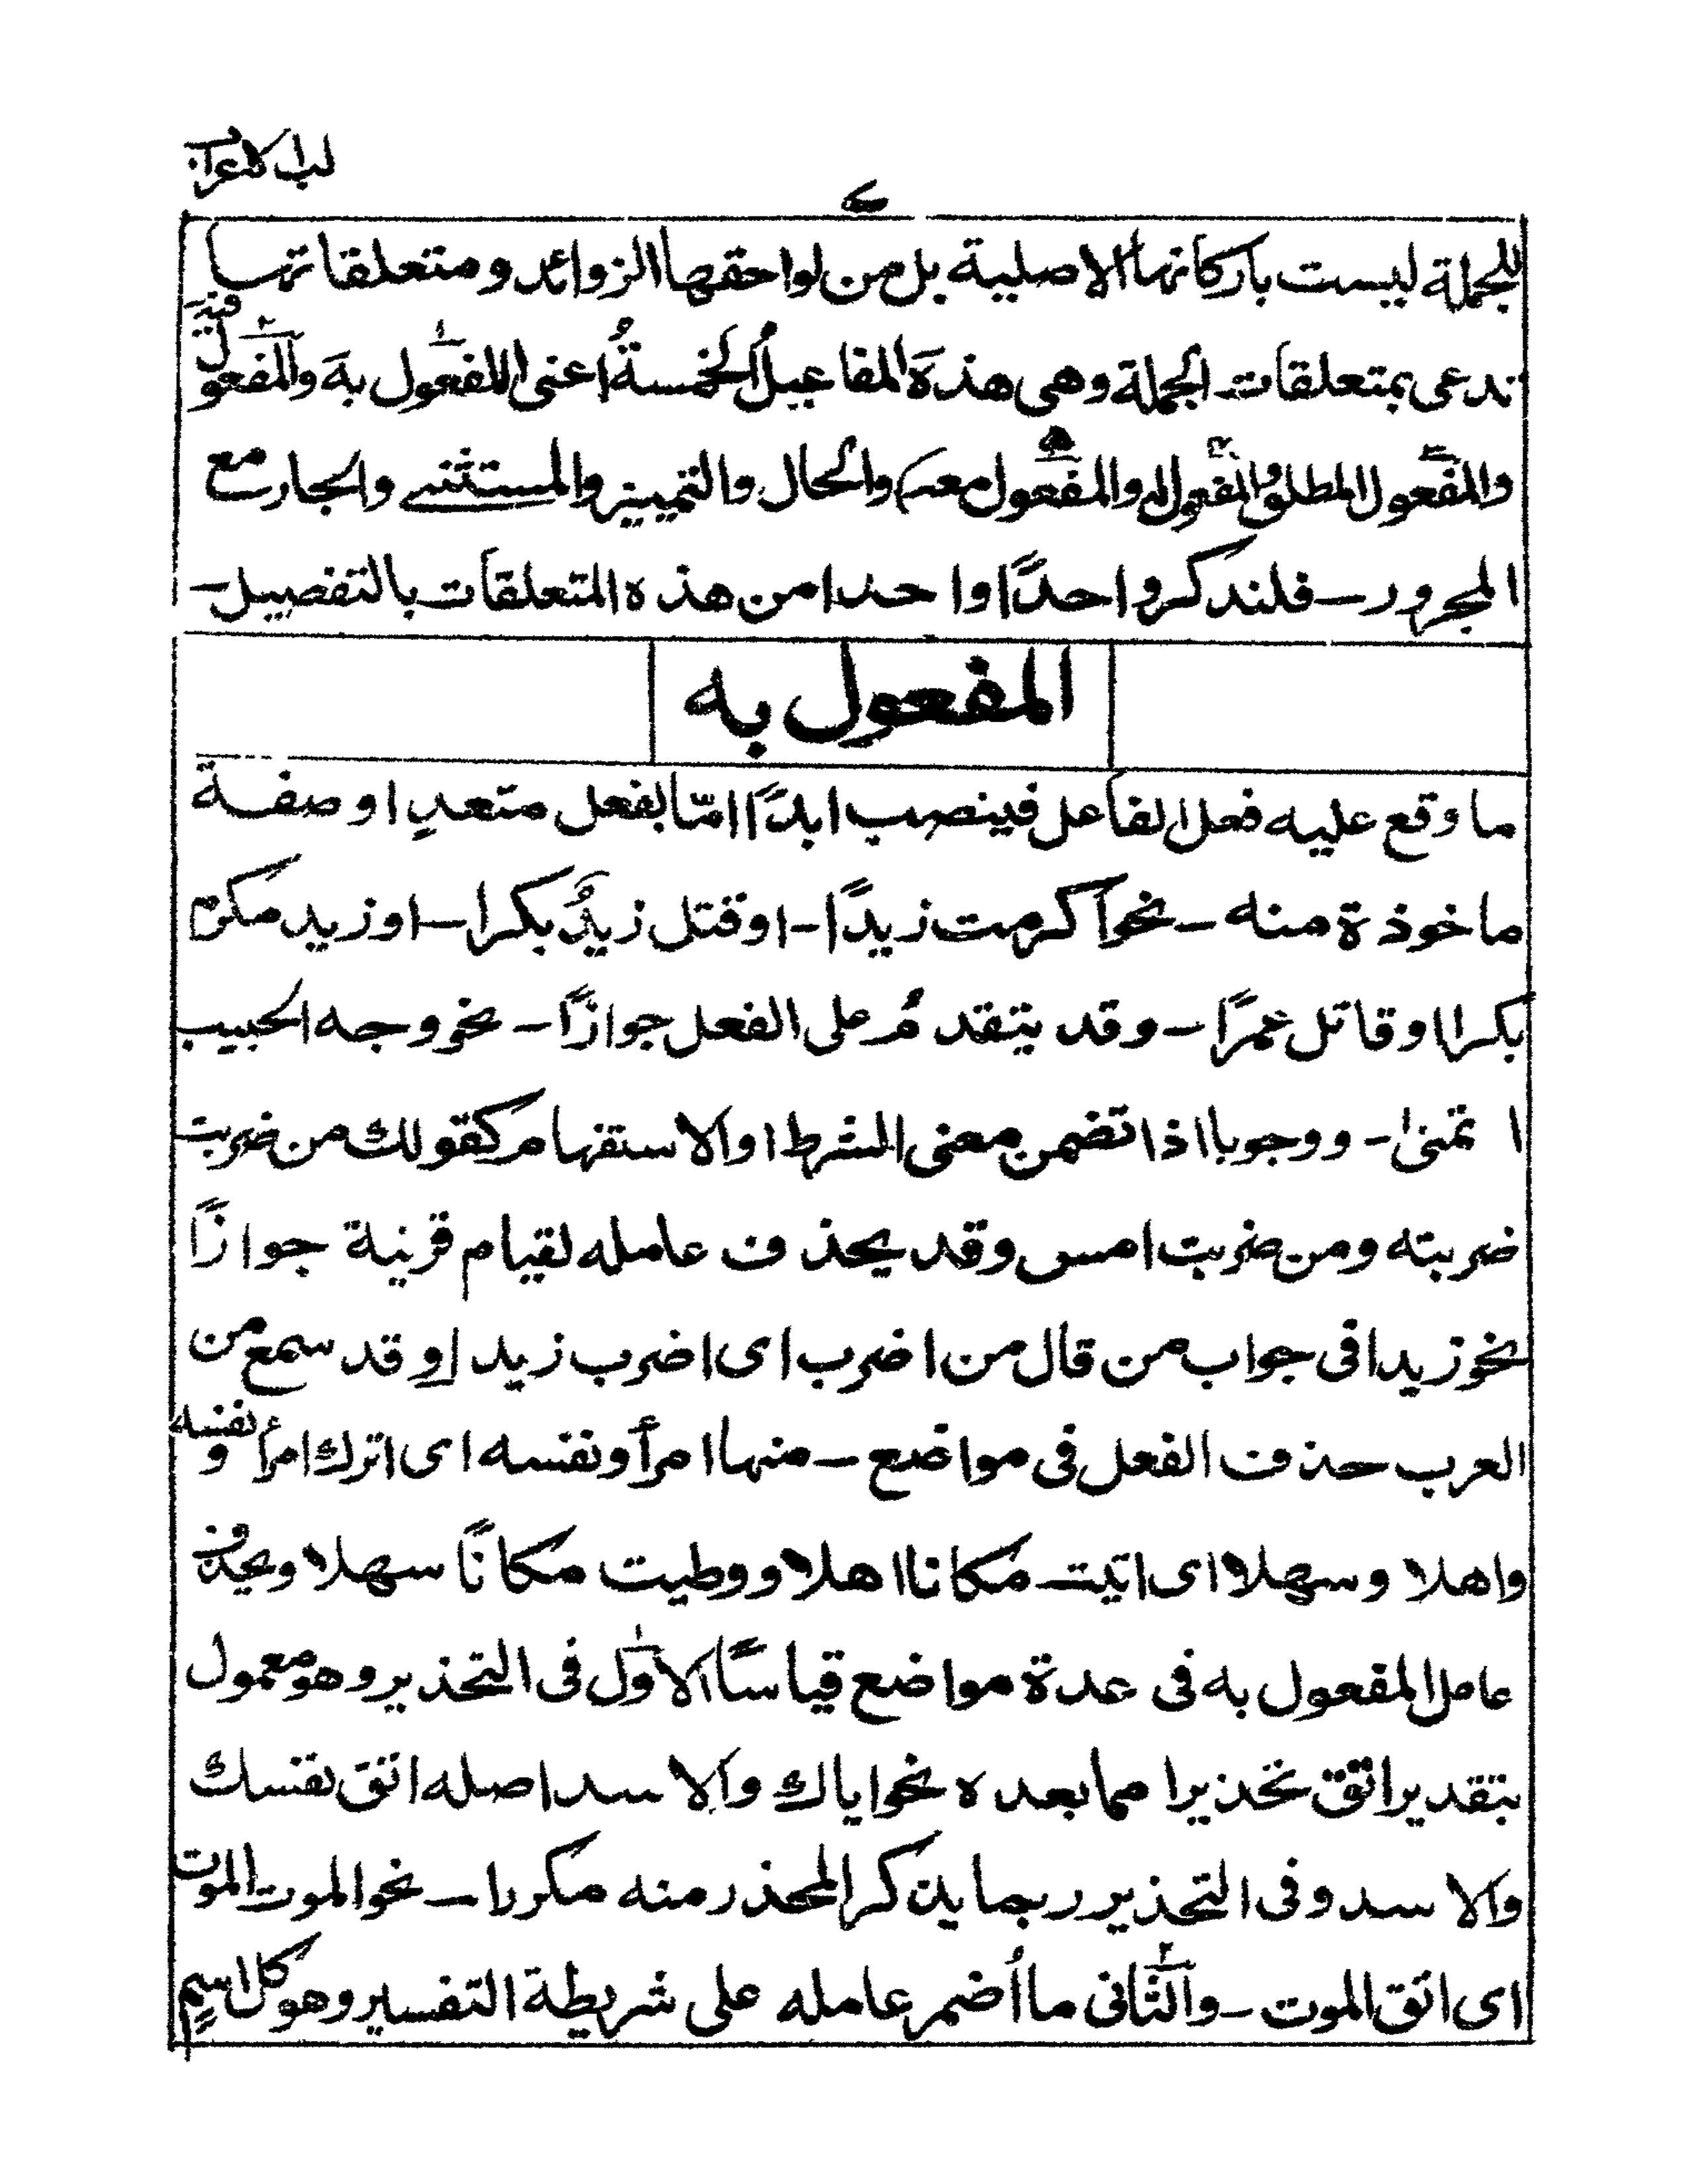 لب الاعراب
للجملة ليست باركانها الاصلية بل من لواحقها الزوائد ومتعلقاتها
تدعى بمتعلقات الجملة وهى هذه المفاعيل الخمسة اعنى المفعول به والمفعول فيه
والمفعول المطلق والمفعول له والمفعول معه والحال والتمييز والمستثنى والجار مع
المجرور ـ فلنذكر واحدًا واحدا من هذه المتعلقات بالتفصيل ـ
المفعول به
ما وقع عليه فعل الفاعل فينصب ابدًا امّا بفعل متعدٍ او صفة
ماخوذة منه ـ نحو اكرمت زيدًا ـ او قتل زيدٌ بكرا ـ او زيد مكرم
بكرا او قاتل عمرًا ـ وقد يتقدمُ على الفعل جوازًا ـ نحو وجه الحبيب
اتمنىٰ ـ ووجوبا اذا تضمن معنى الشرط او الاستفهام كقولك من ضربت
ضربته ومن ضربت امس وقد يحذف عامله لقيام قرينة جوازًا
نحو زيدا فى جواب من قال من اضرب اى اضرب زيدا وقد سمع من
العرب حذف الفعل فى مواضع ـ منها امرأ ونفسه اى اترك امرأ ونفسه
واهلا وسهلا اى اتيت مكانا اهلا ووطيت مكانًا سهلا ويحذف
عامل المفعول به فى عدة مواضع قياسًا الاول فى التحذير وهو معمول
بتقدير اتق تحذيرا مما بعده نحو اياك والاسد اصله اتق نفسك
والاسد وفى التحذير ربما يذكر المحذر منه مكررا ـ نحو الموت الموت
اى اتق الموت ـ والثانى ما اُضمر عامله على شريطة التفسير وهو كل اسمٍ